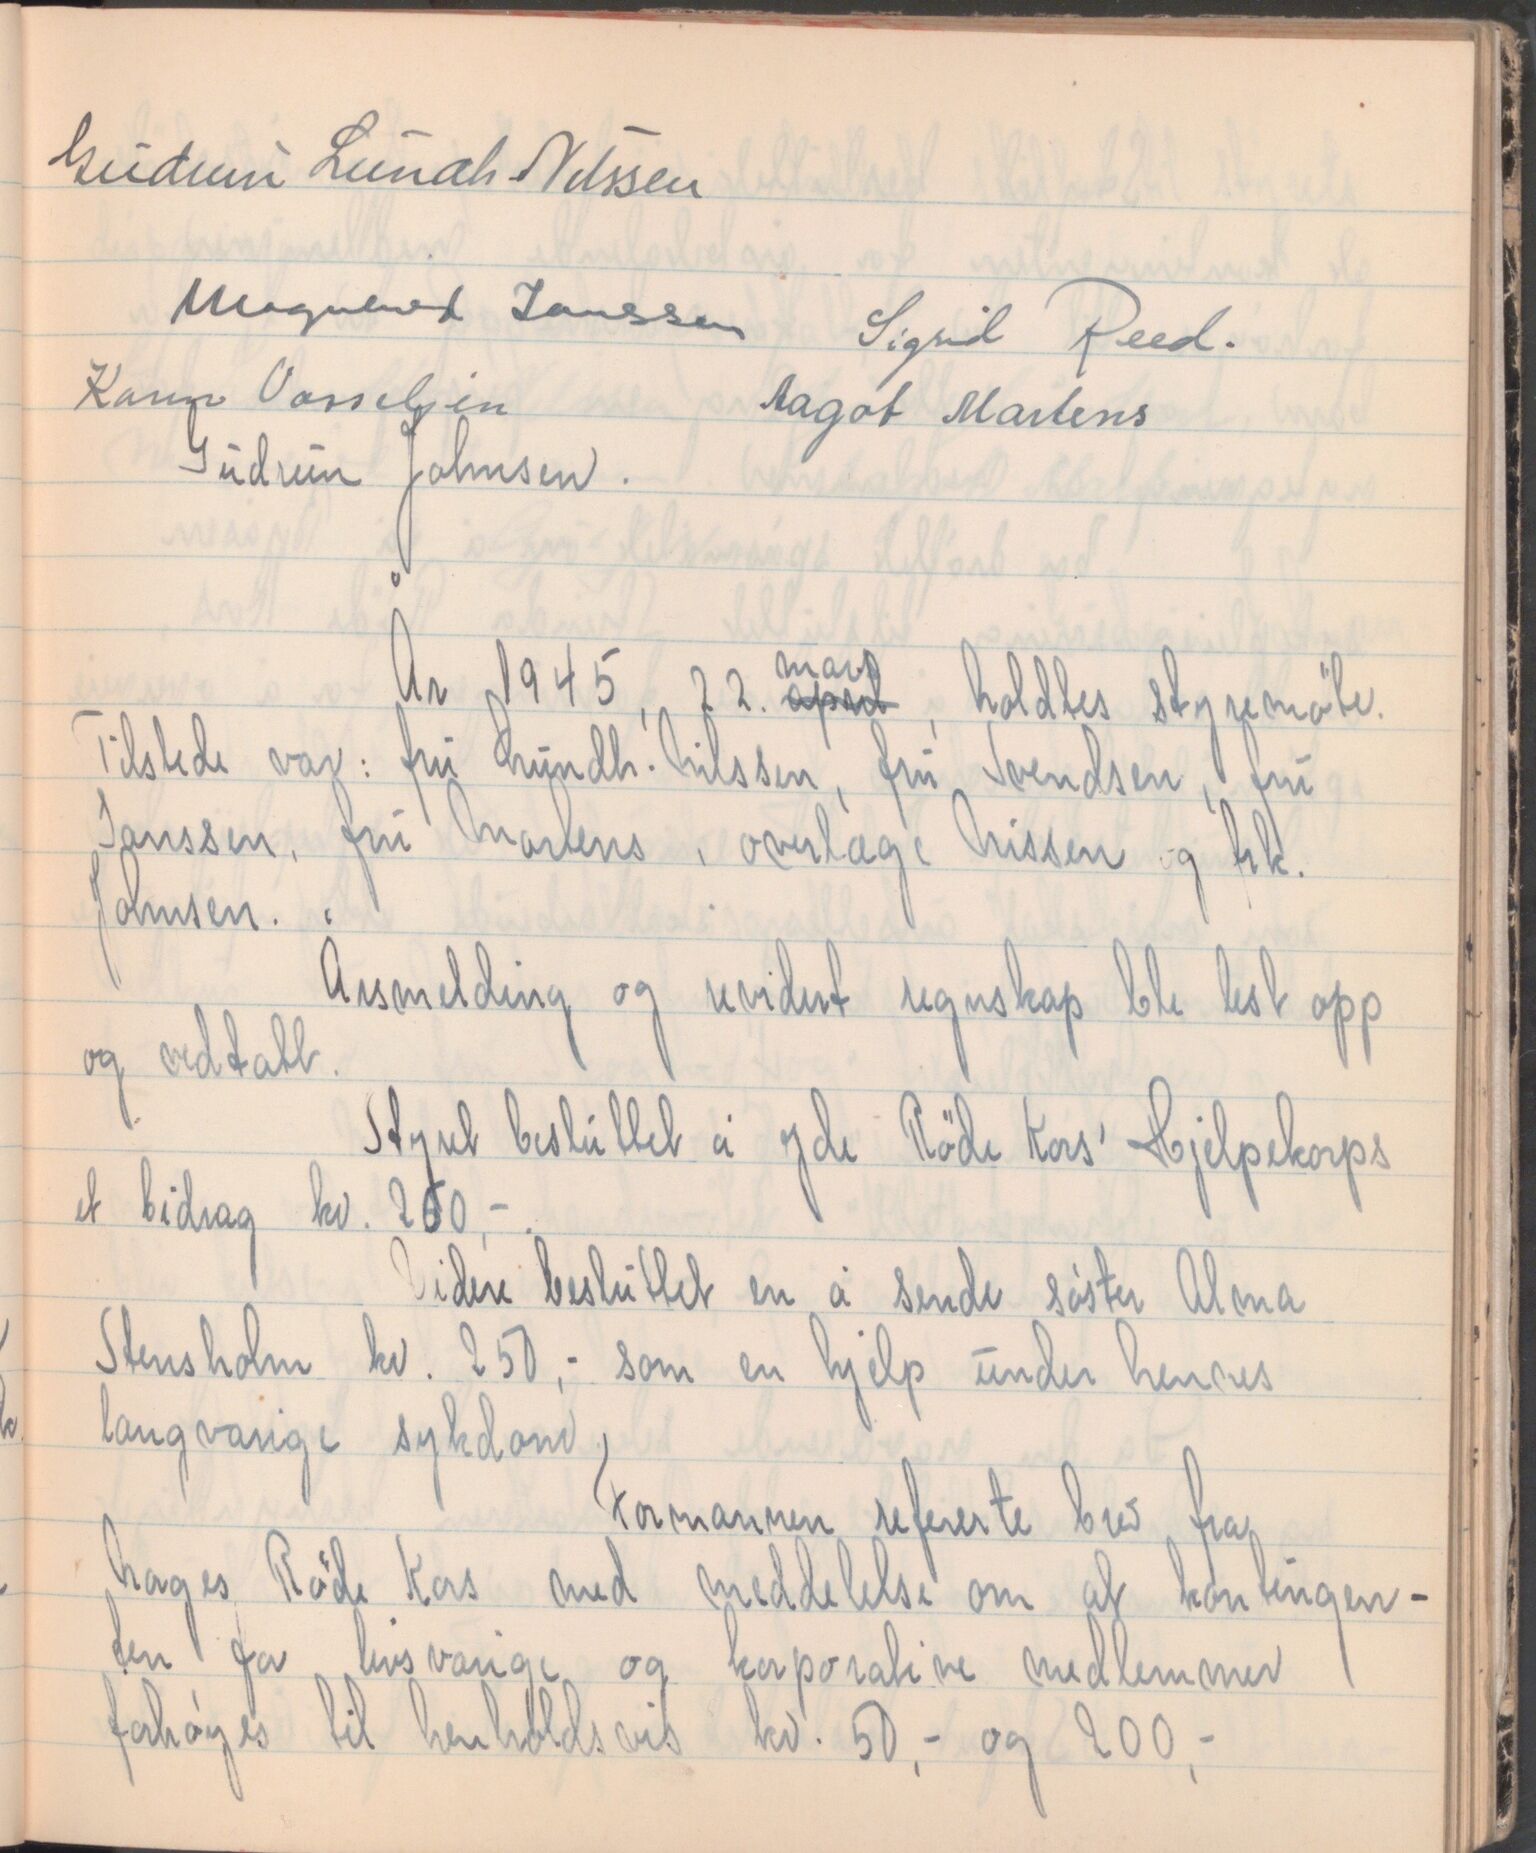 Gudrun Lundh-Nilssen
Magnhild Janssen Sigrid Reed.
Karen Vasseljen Aagot Martens
Gudrun Johnsen.
År 1945, 22. mars april, holdtes styremöte.
Tilstede var: fru Lundh-Nilssen, fru Svendsen, fru
Janssen, fru Martens, overlege Nissen og frk.
Johnsen.
Årsmelding og revidert regnskap ble lest opp
og vedtatt.
Styret besluttet å yde Röde Kors' Hjelpekorps
et bidrag kr. 250,-.
Videre besluttet en å sende söster Alma
Stensholm kr. 250,- som en hjelp under hennes
langvarige sykdom.
Formannen refererte brev fra
Norges Röde Kors med meddelelse om at kontingen-
ten for livsvarige og korporative medlemmer
forhöyes til henholdsvis kr. 50,- og 200,-